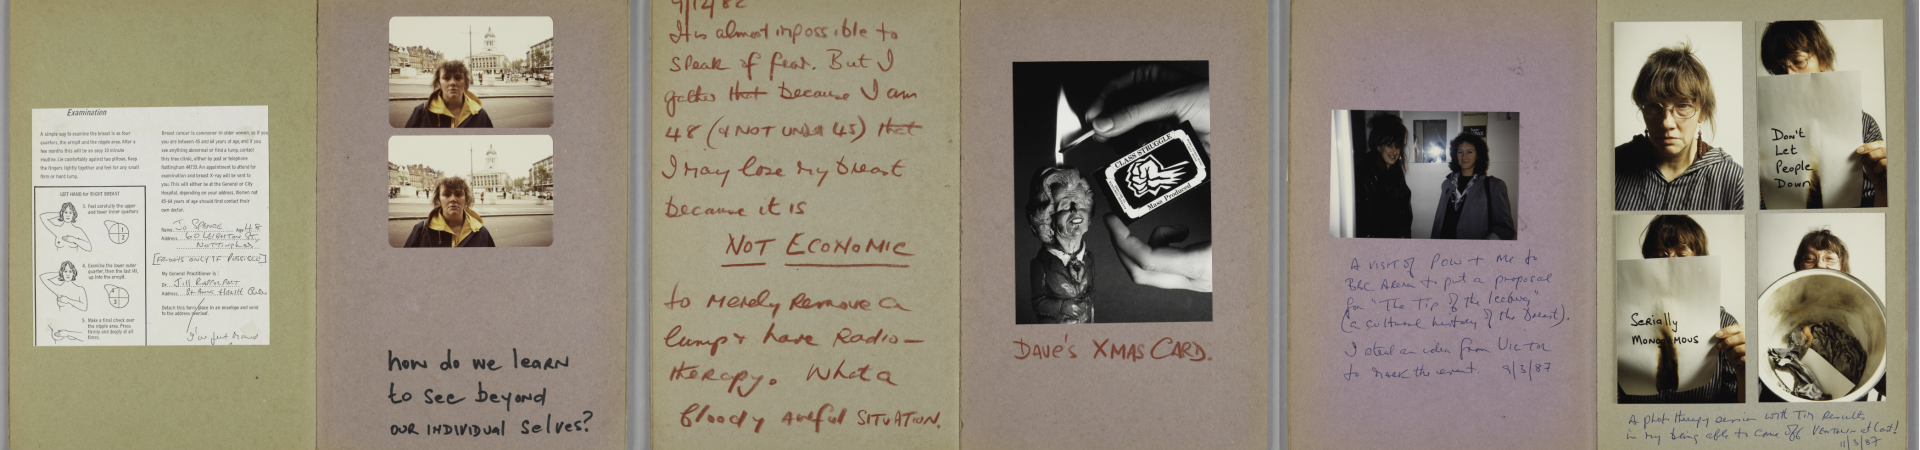 Examination
A simple way to examine the breast is as four
quarters, the armpit and the nipple area. After a
few months this will be an easy 10 minute
routine. Lie comfortably against two pillows. Keep
the fingers tightly together and feel for any small
firm or hard lump.
LEFT HAND for RIGHT BREAST
3. Feel carefully the upper
and lower inner quarters
1
2
4. Examine the lower outer
quarter, then the last
up into the armpit.
4
3
5. Make a final check over
the nipple area. Press
firmly and deeply at all
times.
Breast cancer is commoner in older women, so if you
you are between 45 and 64 years of age, and if you
see anything abnormal or find a lump contact
this free clinic, either by post or telephone
Nottingham An appointment to attend for
examination and breast X-ray will be sent to
you. This will either be at the General or City
Hospital, depending on your address. Women not
45-64 years of age should first contact their
own doctor.
Name Jo Spence Age 48
Address 60 Leighton St,
Nottingham
[FRIDAYS ONLY IF POSSIBLE]
My General Practitioner is:
Dr. Jill Rapoport
Address St Anns Health Centre
Detach this form, place in an envelope and send
to the address overleaf.
I've just
how do we learn
to see beyond
our INDIVIDUAL selves?
9/12/82
It is almost impossible to
speak of fear. But I
gather that because I am
48 (& NOT UNDER 45) that
I may lose my breast
because it is
NOT ECONOMIC
to merely remove a
lump & have Radio-
therapy. What a
bloody awful SITUATION.
CLASS STRUGGLE
Mass Produced
DAVE'S XMAS CARD.
A visit of Pow + Me to
BBC Arena to put a proposal
for "The Tip of the Iceberg"
(a cultural history of the breast).
I steal an idea from VICTOR
to mark the event. 9/3/87
Don't
Let
People
Down
Serially
Monogamous
A photo therapy session with Tim results
in my being able to come off VENTOLIN at last!
11/3/87